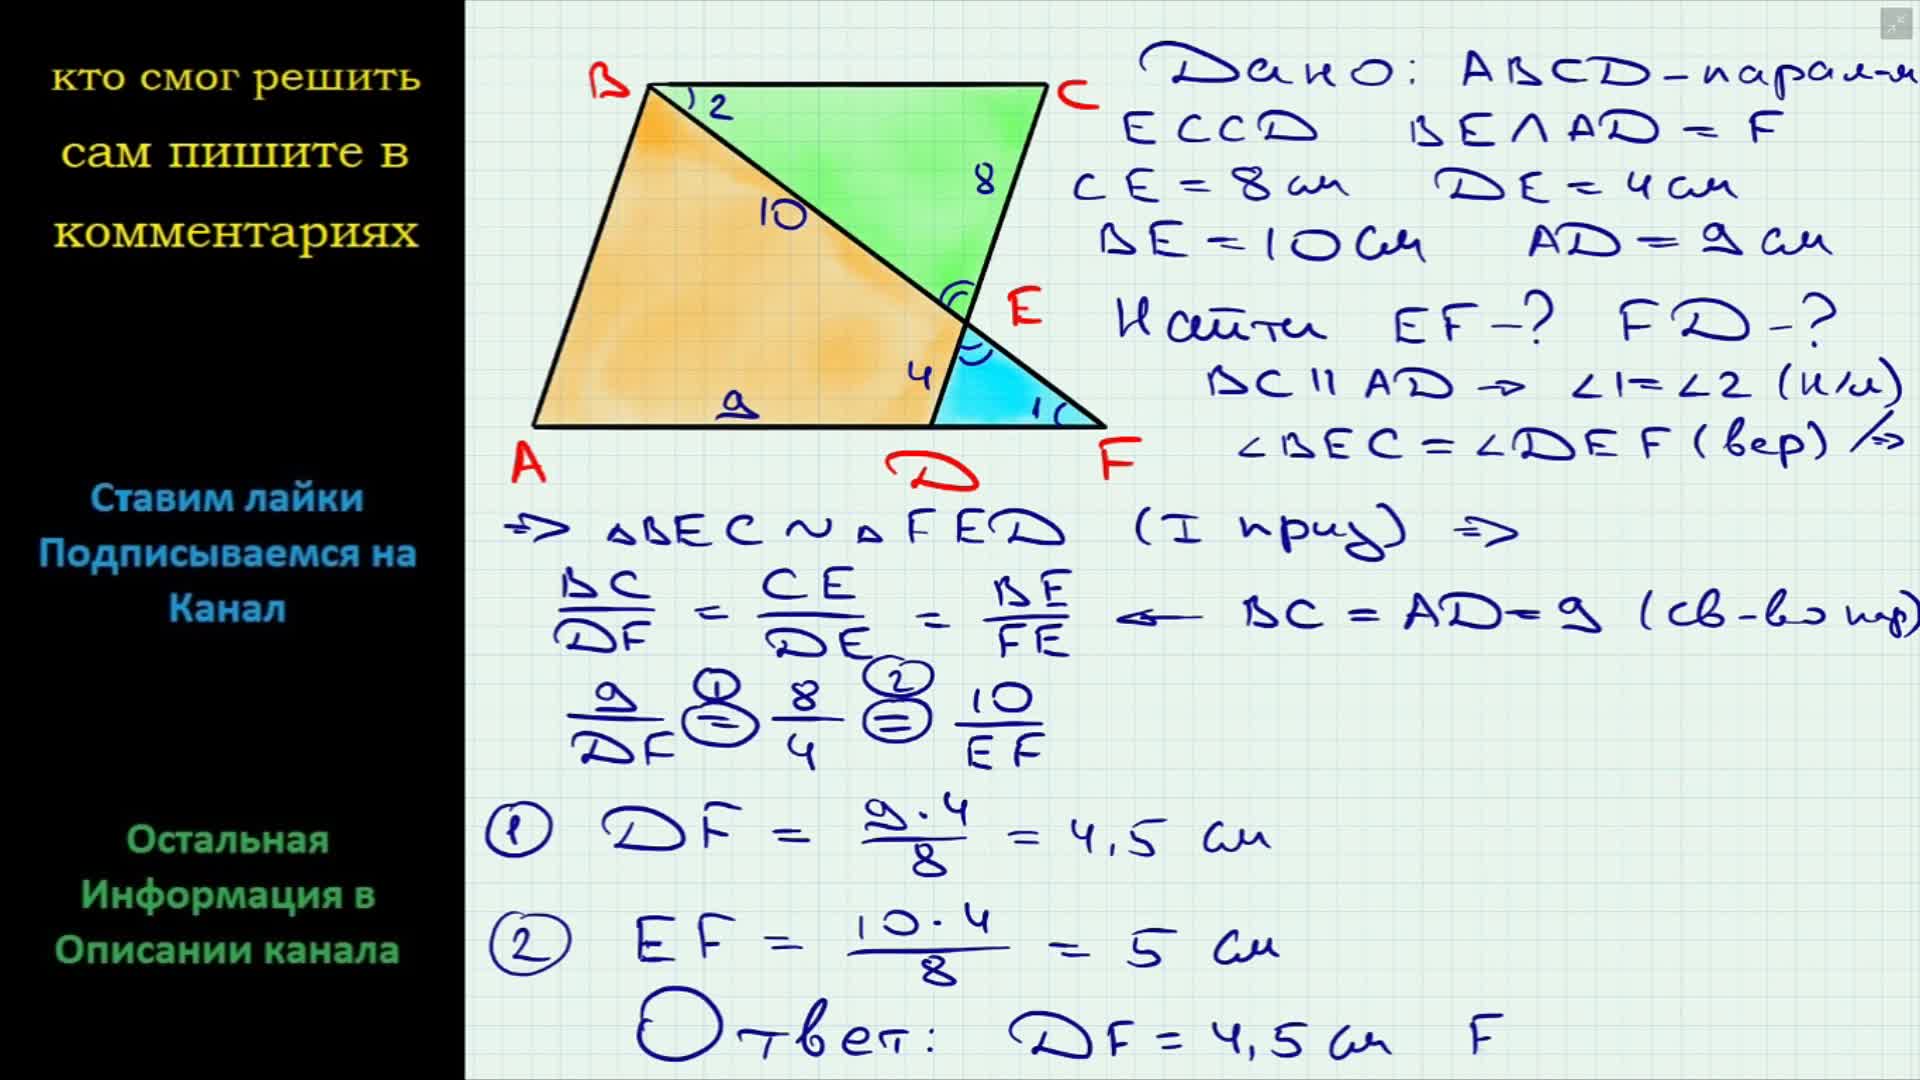 кто смог решить
сам пишите в
комментариях
Ставим лайки
Подписываемся на
Канал
Остальная
Информация в
Описании канала
B
C
2
8
10
E
4
9
1
A
D
F
Дано: ABCD - парал-м
E ⊂ CD BE ∩ AD = F
CE = 8 см DE = 4 см
BE = 10 см AD = 9 см
Найти EF - ? FD - ?
BC || AD → ∠1 = ∠2 (н/л)
∠BEC = ∠DEF (вер) ⇒
⇒ △BEC ~ △FED (I приз) ⇒
BC/DF = CE/DE = BE/FE ← BC = AD = 9 (св-во пар)
9/DF =① 8/4 =② 10/EF
① DF = 9·4/8 = 4,5 см
② EF = 10·4/8 = 5 см
Ответ: DF = 4,5 см F